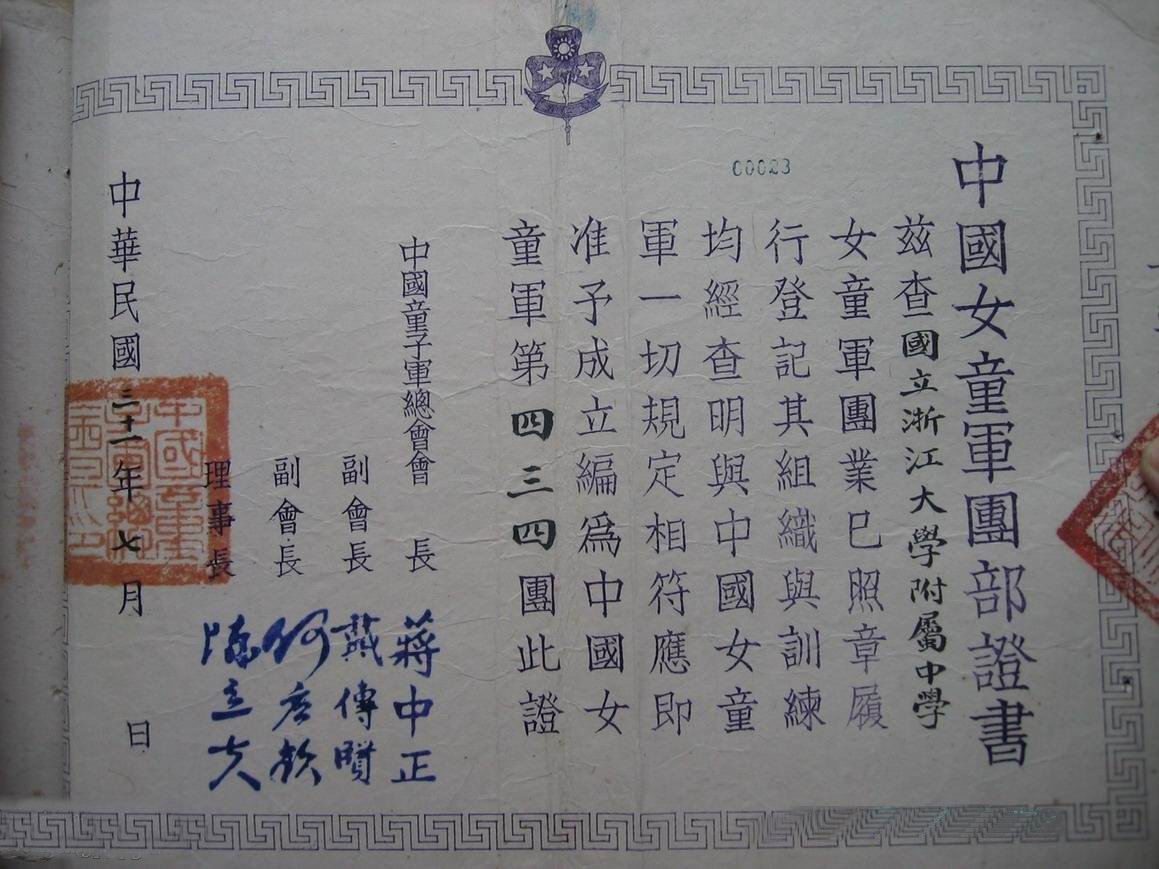 中國女童軍團部證書
00023
茲查國立浙江大學附屬中學
女童軍團業已照章履
行登記其組織與訓練
均經查明與中國女童
軍一切規定相符應即
准予成立編為中國女
童軍第四三四團此證
中國童子軍總會會 長 蔣中正
副會長 戴傳賢
副會長 何應欽
理事長 陳立夫
中華民國三十一年七月 日